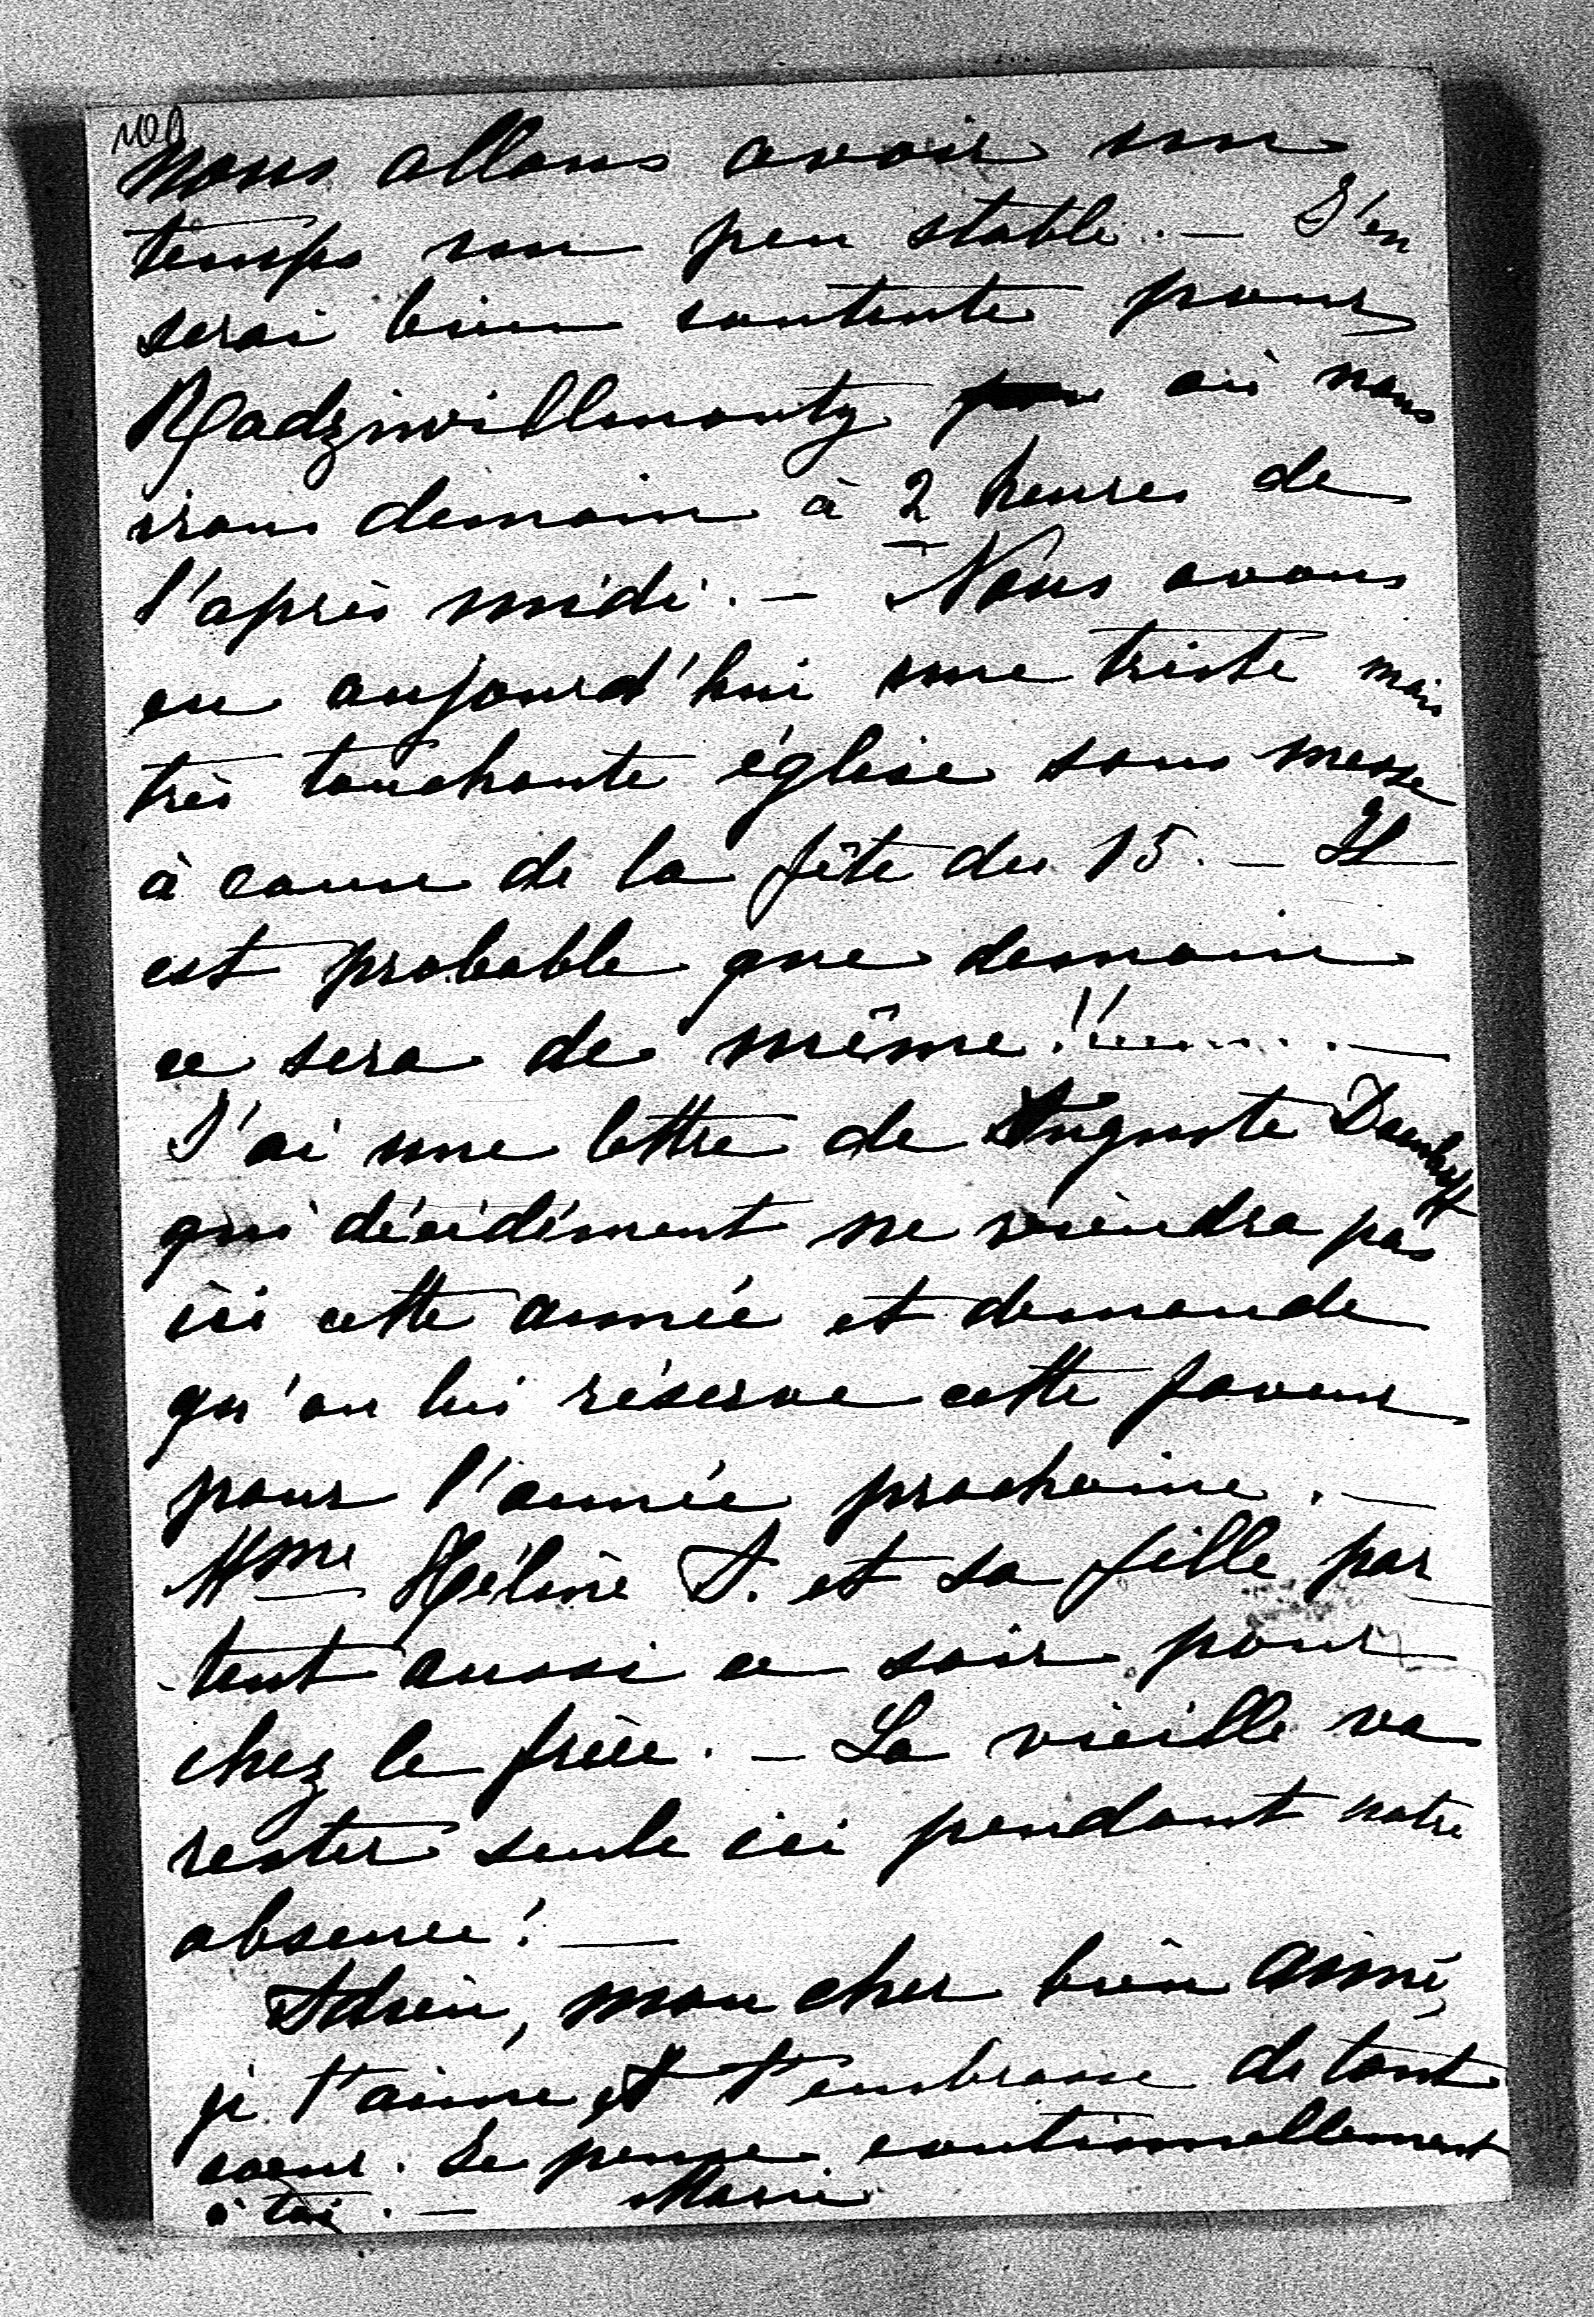 nous allons avoir un
temps un peu stable. — J'en
serai bien contente pour
Radziwillmonty où nous
irons demain à 2 heures de
l'après midi. — Nous avons
eu aujourd'hui une triste mais
très touchante église sans messe
à cause de la fête du 15. — Il
est probable que demain
ce sera de même!!........—
J'ai une lettre de Auguste
qui décidément ne viendra pas
ici cette année et demande
qu'on lui réserve cette faveur
pour l'année prochaine. —
Mme Hélène S. et sa fille par
tent aussi ce soir pour
chez le frère. — La vieille va
rester seule ici pendant notre
absence! —
Adieu, mon cher bien aimé,
je t'aime et t'embrasse de tout
coeur. Je pense continuellement
à toi. — Marie